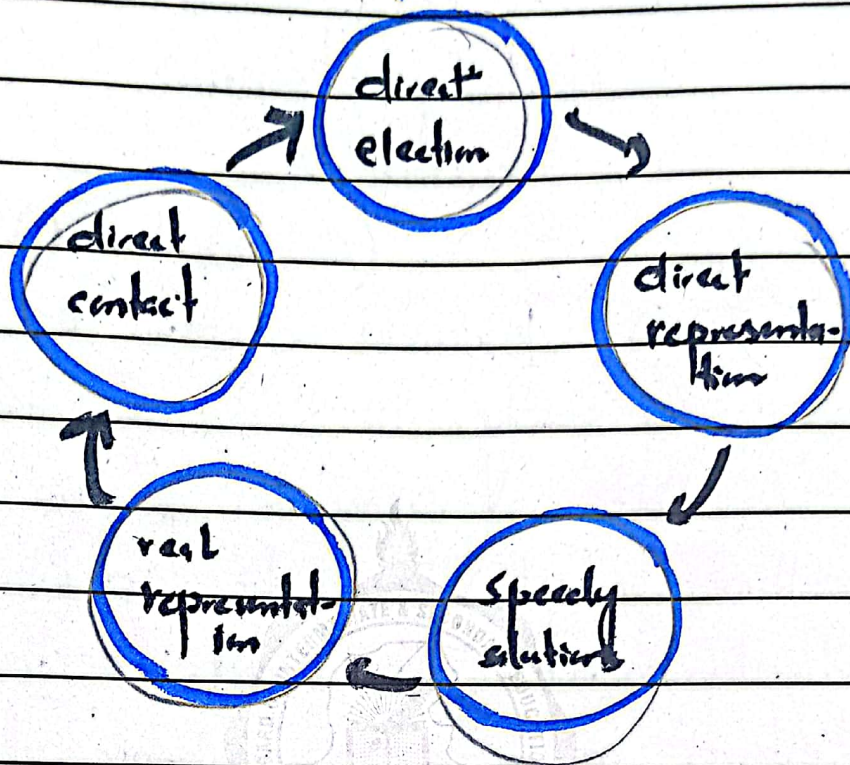 direct
election
direct
representa-
tion
speedy
solutions
real
representat-
ion
direct
contact